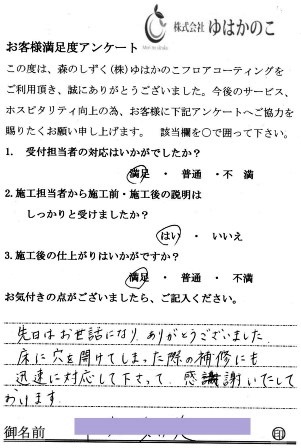 株式会社 ゆはかのこ
お客様満足度アンケート
この度は、森のしずく(株)ゆはかのこフロアコーティングを
ご利用頂き、誠にありがとうございました。今後のサービス、
ホスピタリティ向上の為、お客様に下記アンケートへご協力を
賜りたくお願い申し上げます。 該当欄を○で囲って下さい。
1. 受付担当者の対応はいかがでしたか?
満足 ・ 普通 ・ 不 満
2. 施工担当者から施工前・施工後の説明は
しっかりと受けましたか?
はい ・ いいえ
3. 施工後の仕上がりはいかがですか?
満足 ・ 普通 ・ 不満
お気付きの点がございましたら、ご記入ください。
先日はお世話になり ありがとうございました。
床に穴を開けてしまった際の補修にも
迅速に対応して下さって、感謝いたして
おります。
御名前 印